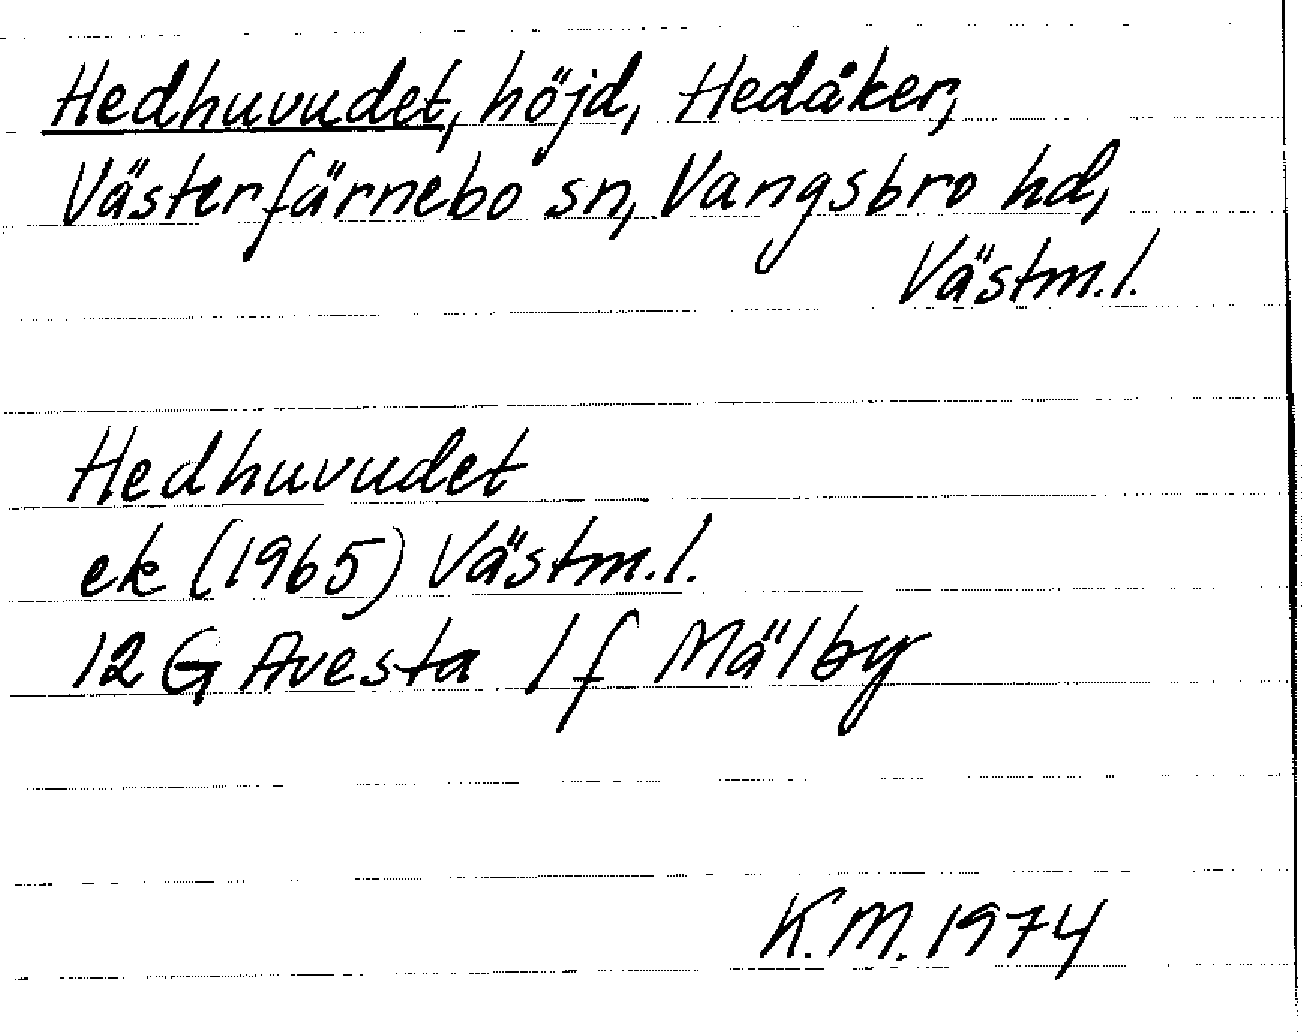 Hedhuvudet, höjd, Hedåker,
Västerfärnebo sn, Vangsbro hd,
Västm.l.
Hedhuvudet
ek (1965) Västm.l.
12 G Avesta 1 f Mälby
K.M. 1974